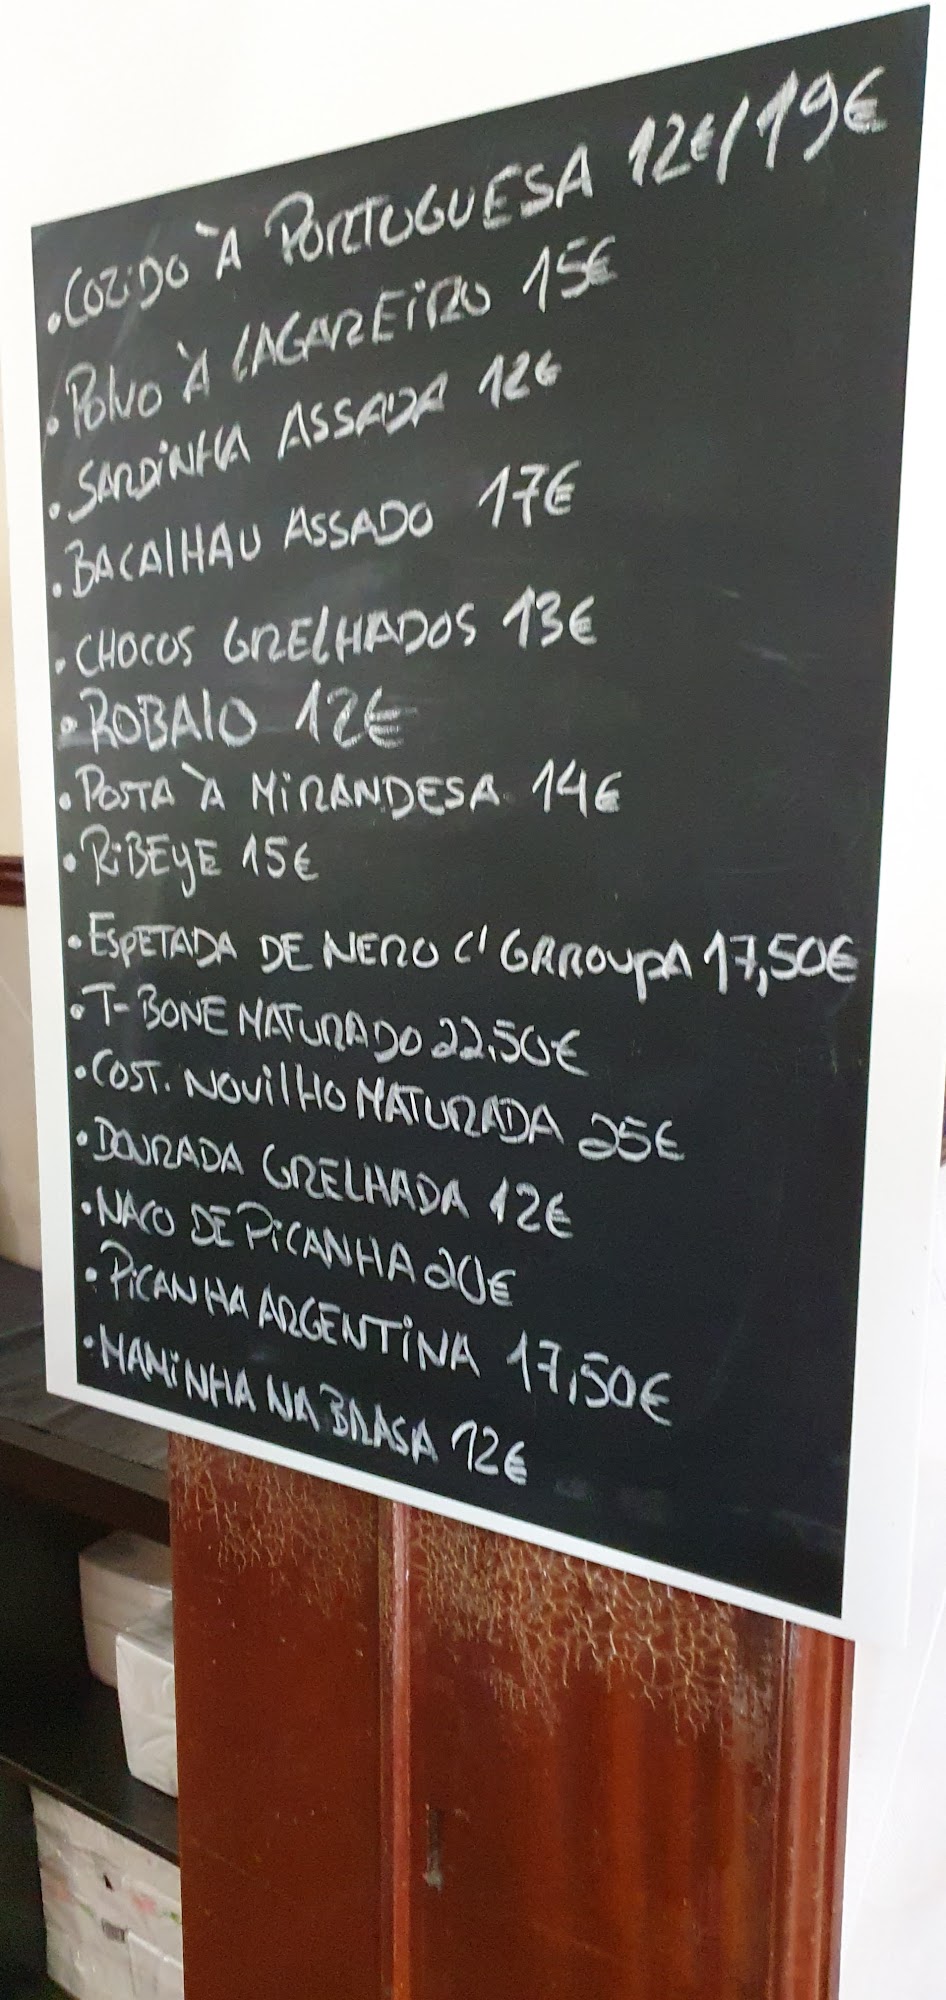 • COZIDO À PORTUGUESA 12€/19€
• POLVO À LAGAREIRO 15€
• SARDINHA ASSADA 12€
• BACALHAU ASSADO 17€
• CHOCOS GRELHADOS 13€
• ROBALO 12€
• POSTA À MIRANDESA 14€
• RIBEYE 15€
• ESPETADA DE MERO C/ GAROUPA 17,50€
• T-BONE MATURADO 22,50€
• COST. NOVILHO MATURADA 25€
• DOURADA GRELHADA 12€
• NACO DE PICANHA 20€
• PICANHA ARGENTINA 17,50€
• MAMINHA NA BRASA 12€